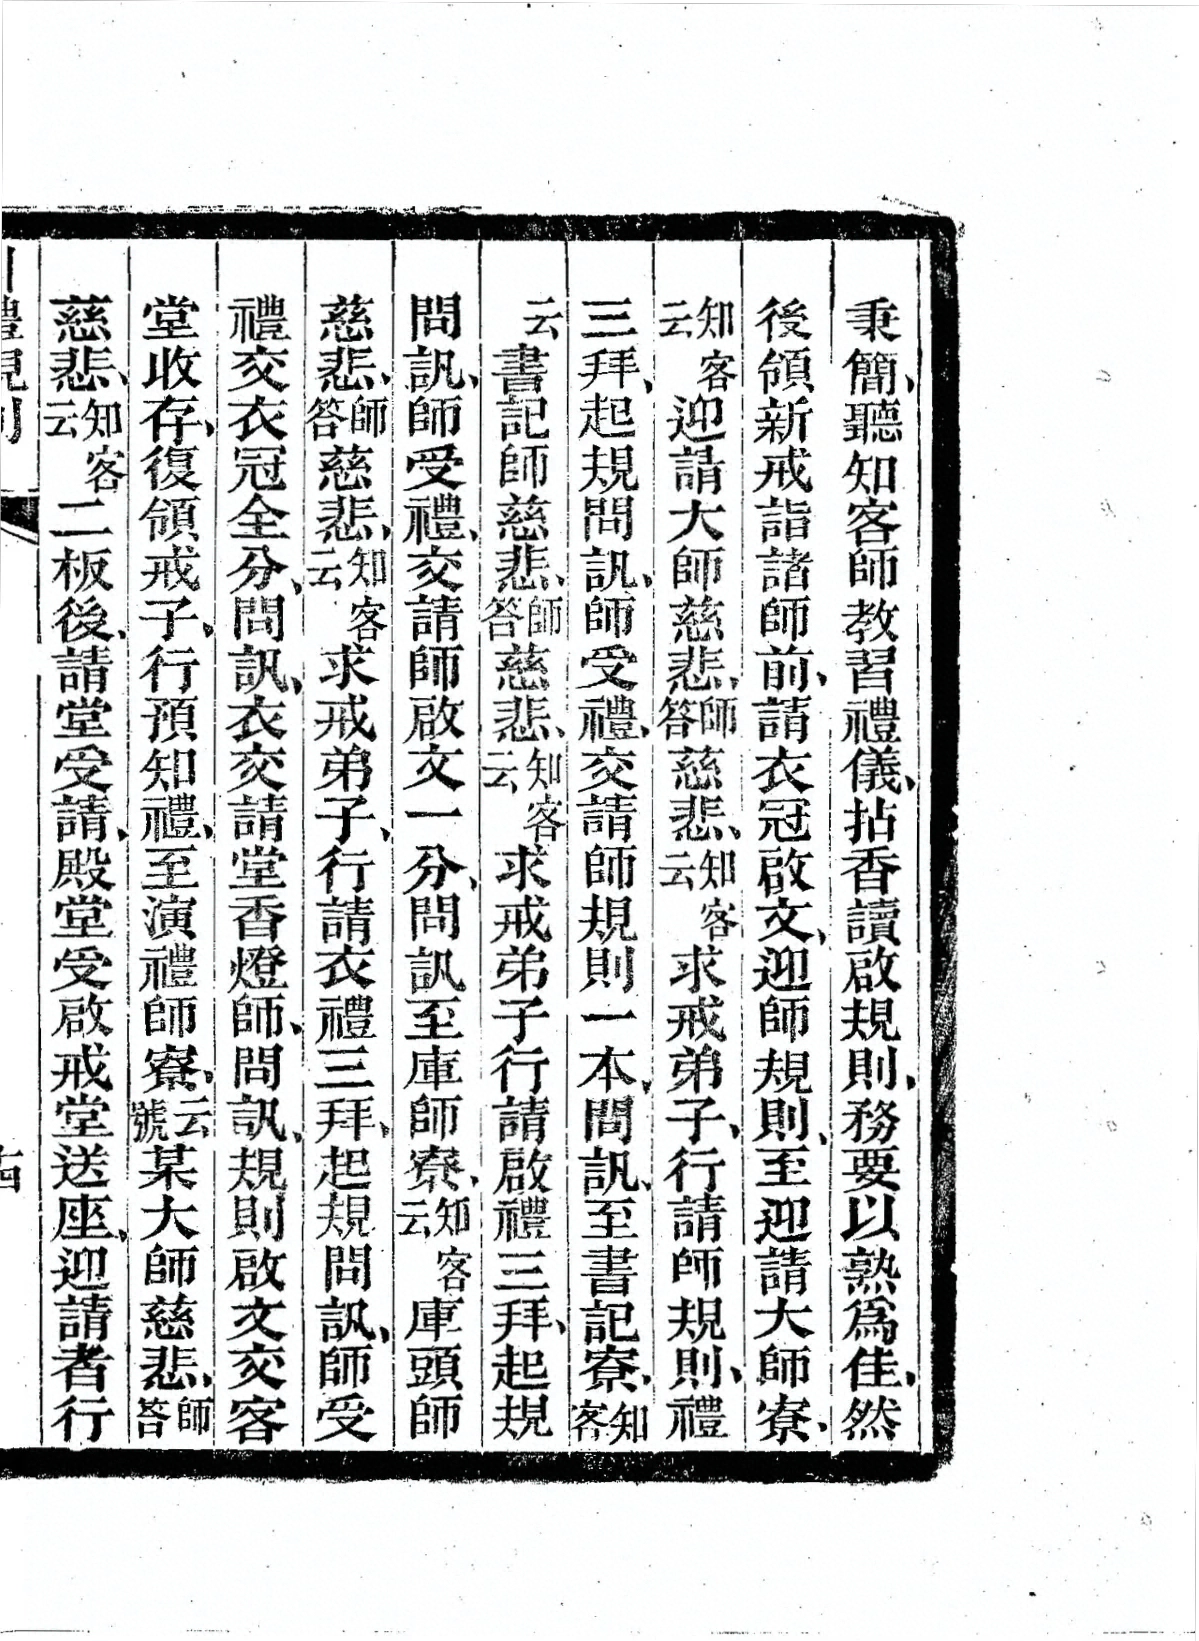 秉簡、聽知客師教習禮儀、拈香讀啟規則、務要以熟爲佳、然
後領新戒詣諸師前、請衣冠啟文、迎師規則、至迎請大師寮、
知客云迎請大師慈悲、師答慈悲、知客云求戒弟子、行請師規則、禮
三拜、起規問訊、師受禮、交請師規則一本、問訊、至書記寮、知客
云書記師慈悲、師答慈悲、知客云求戒弟子行請啟禮三拜、起規
問訊、師受禮、交請師啟文一分、問訊至庫師寮、知客云庫頭師
慈悲、師答慈悲、知客云求戒弟子、行請衣禮三拜、起規問訊、師受
禮交衣冠全分、問訊、衣交請堂香燈師、問訊、規則啟文交客
堂收存、復領戒子、行預知禮、至演禮師寮、云號某大師慈悲、師答
慈悲、知客云二板後、請堂受請、殿堂受啟戒堂送座、迎請者行